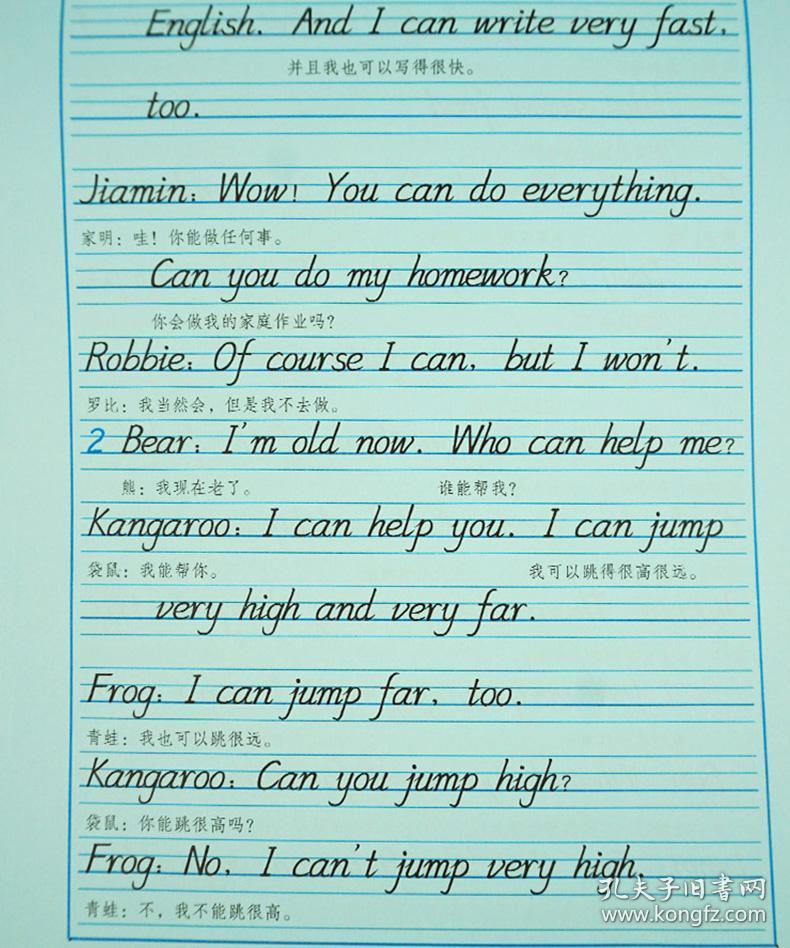 English. And I can write very fast,
并且我也可以写得很快。
too.
Jiamin: Wow! You can do everything.
家明：哇！你能做任何事。
Can you do my homework?
你会做我的家庭作业吗？
Robbie: Of course I can, but I won't.
罗比：我当然会，但是我不去做。
2 Bear: I'm old now. Who can help me?
熊：我现在老了。 谁能帮我？
Kangaroo: I can help you. I can jump
袋鼠：我能帮你。 我可以跳得很高很远。
very high and very far.
Frog: I can jump far, too.
青蛙：我也可以跳很远。
Kangaroo: Can you jump high?
袋鼠：你能跳很高吗？
Frog: No, I can't jump very high.
青蛙：不，我不能跳很高。
孔夫子旧书网
www.kongfz.com